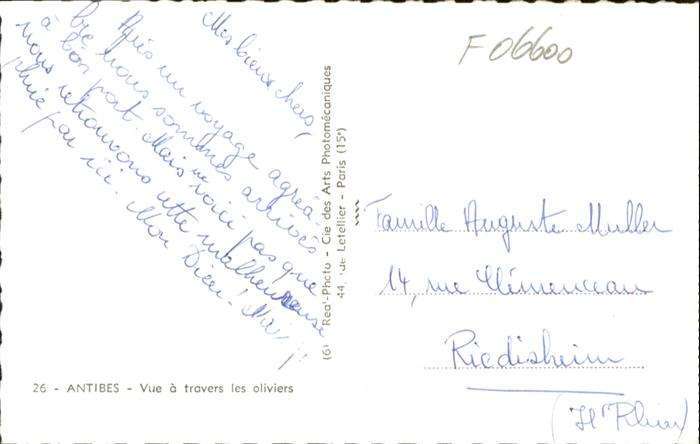 Mes bien chers,
Après un voyage agréa-
ble nous sommes arrivés
à bon port. Mais ne voici pas que
nous retrouvons cette malheureuse
pluie par ici. Mon Dieu! Mais
F 06600
(6) Real-Photo - Cie des Arts Photomécaniques
44, rue Letellier - Paris (15e)
Famille Auguste Muller
14, rue Clémenceau
Riedisheim
(Ht Rhin)
26 - ANTIBES - Vue à travers les oliviers